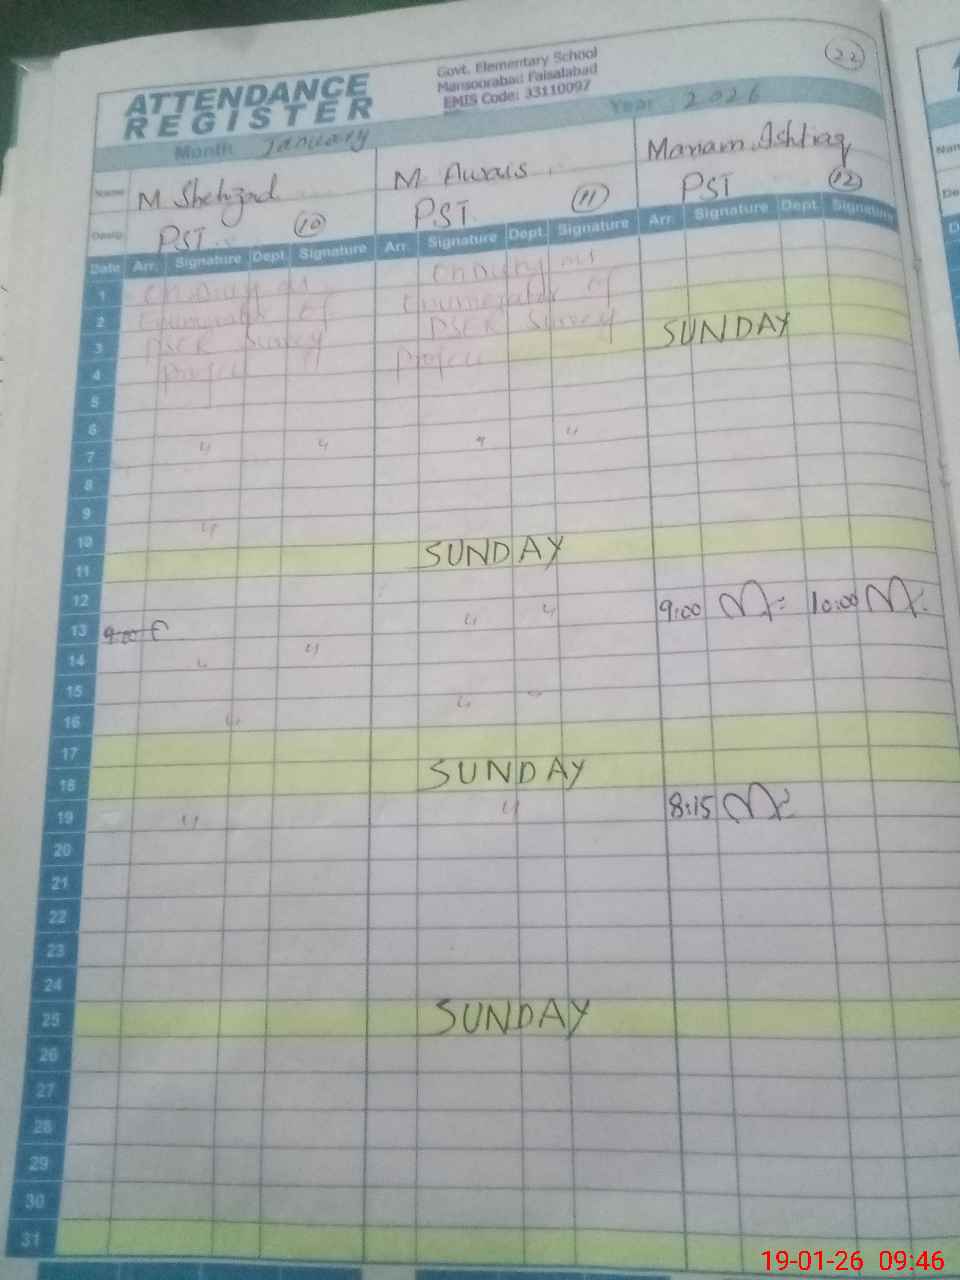 22
ATTENDANCE
REGISTER
Govt. Elementary School
Mansoorabad Faisalabad
EMIS Code: 33110097
Month January
Year 2026
Name M Shehzad M Awais Mariam Ishtiaq
Desig: PST 10 PST 11 PST 12
Date Arr. Signature Dept. Signature Arr. Signature Dept. Signature Arr. Signature Dept. Signature
1 on Duty as on Duty as
2 Enumerator of Enumerator of
3 PSER Survey PSER Survey SUNDAY
4 Project Project
5
6
7 " " " "
8
9
10 "
11 SUNDAY
12
13 9:00 " " 9:00 10:00
14 " "
15
16 " " "
17
18 SUNDAY
19 " " 8:15
20
21
22
23
24
25 SUNDAY
26
27
28
29
30
31
19-01-26 09:46